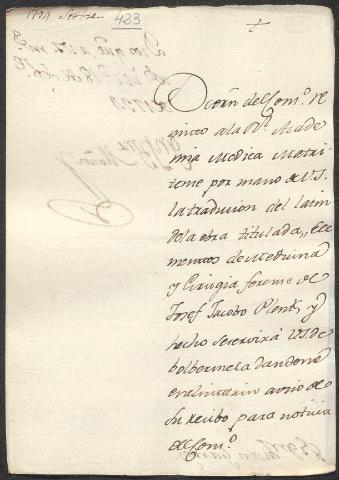 1794 Septre.
423
De orñ del Conso. re
mito a la Rl. Acade
mia Medica Matri
tense por mano de V.S.
la traducion del latin
de la obra titulada, Ele
mentos de Medicina
y Cirugia forense de
Josef Jacobo Plenk, y
hecho se servirá V.S. de
bolbermela dandome
en el interin aviso de
su recibo para noticia
del Conso.